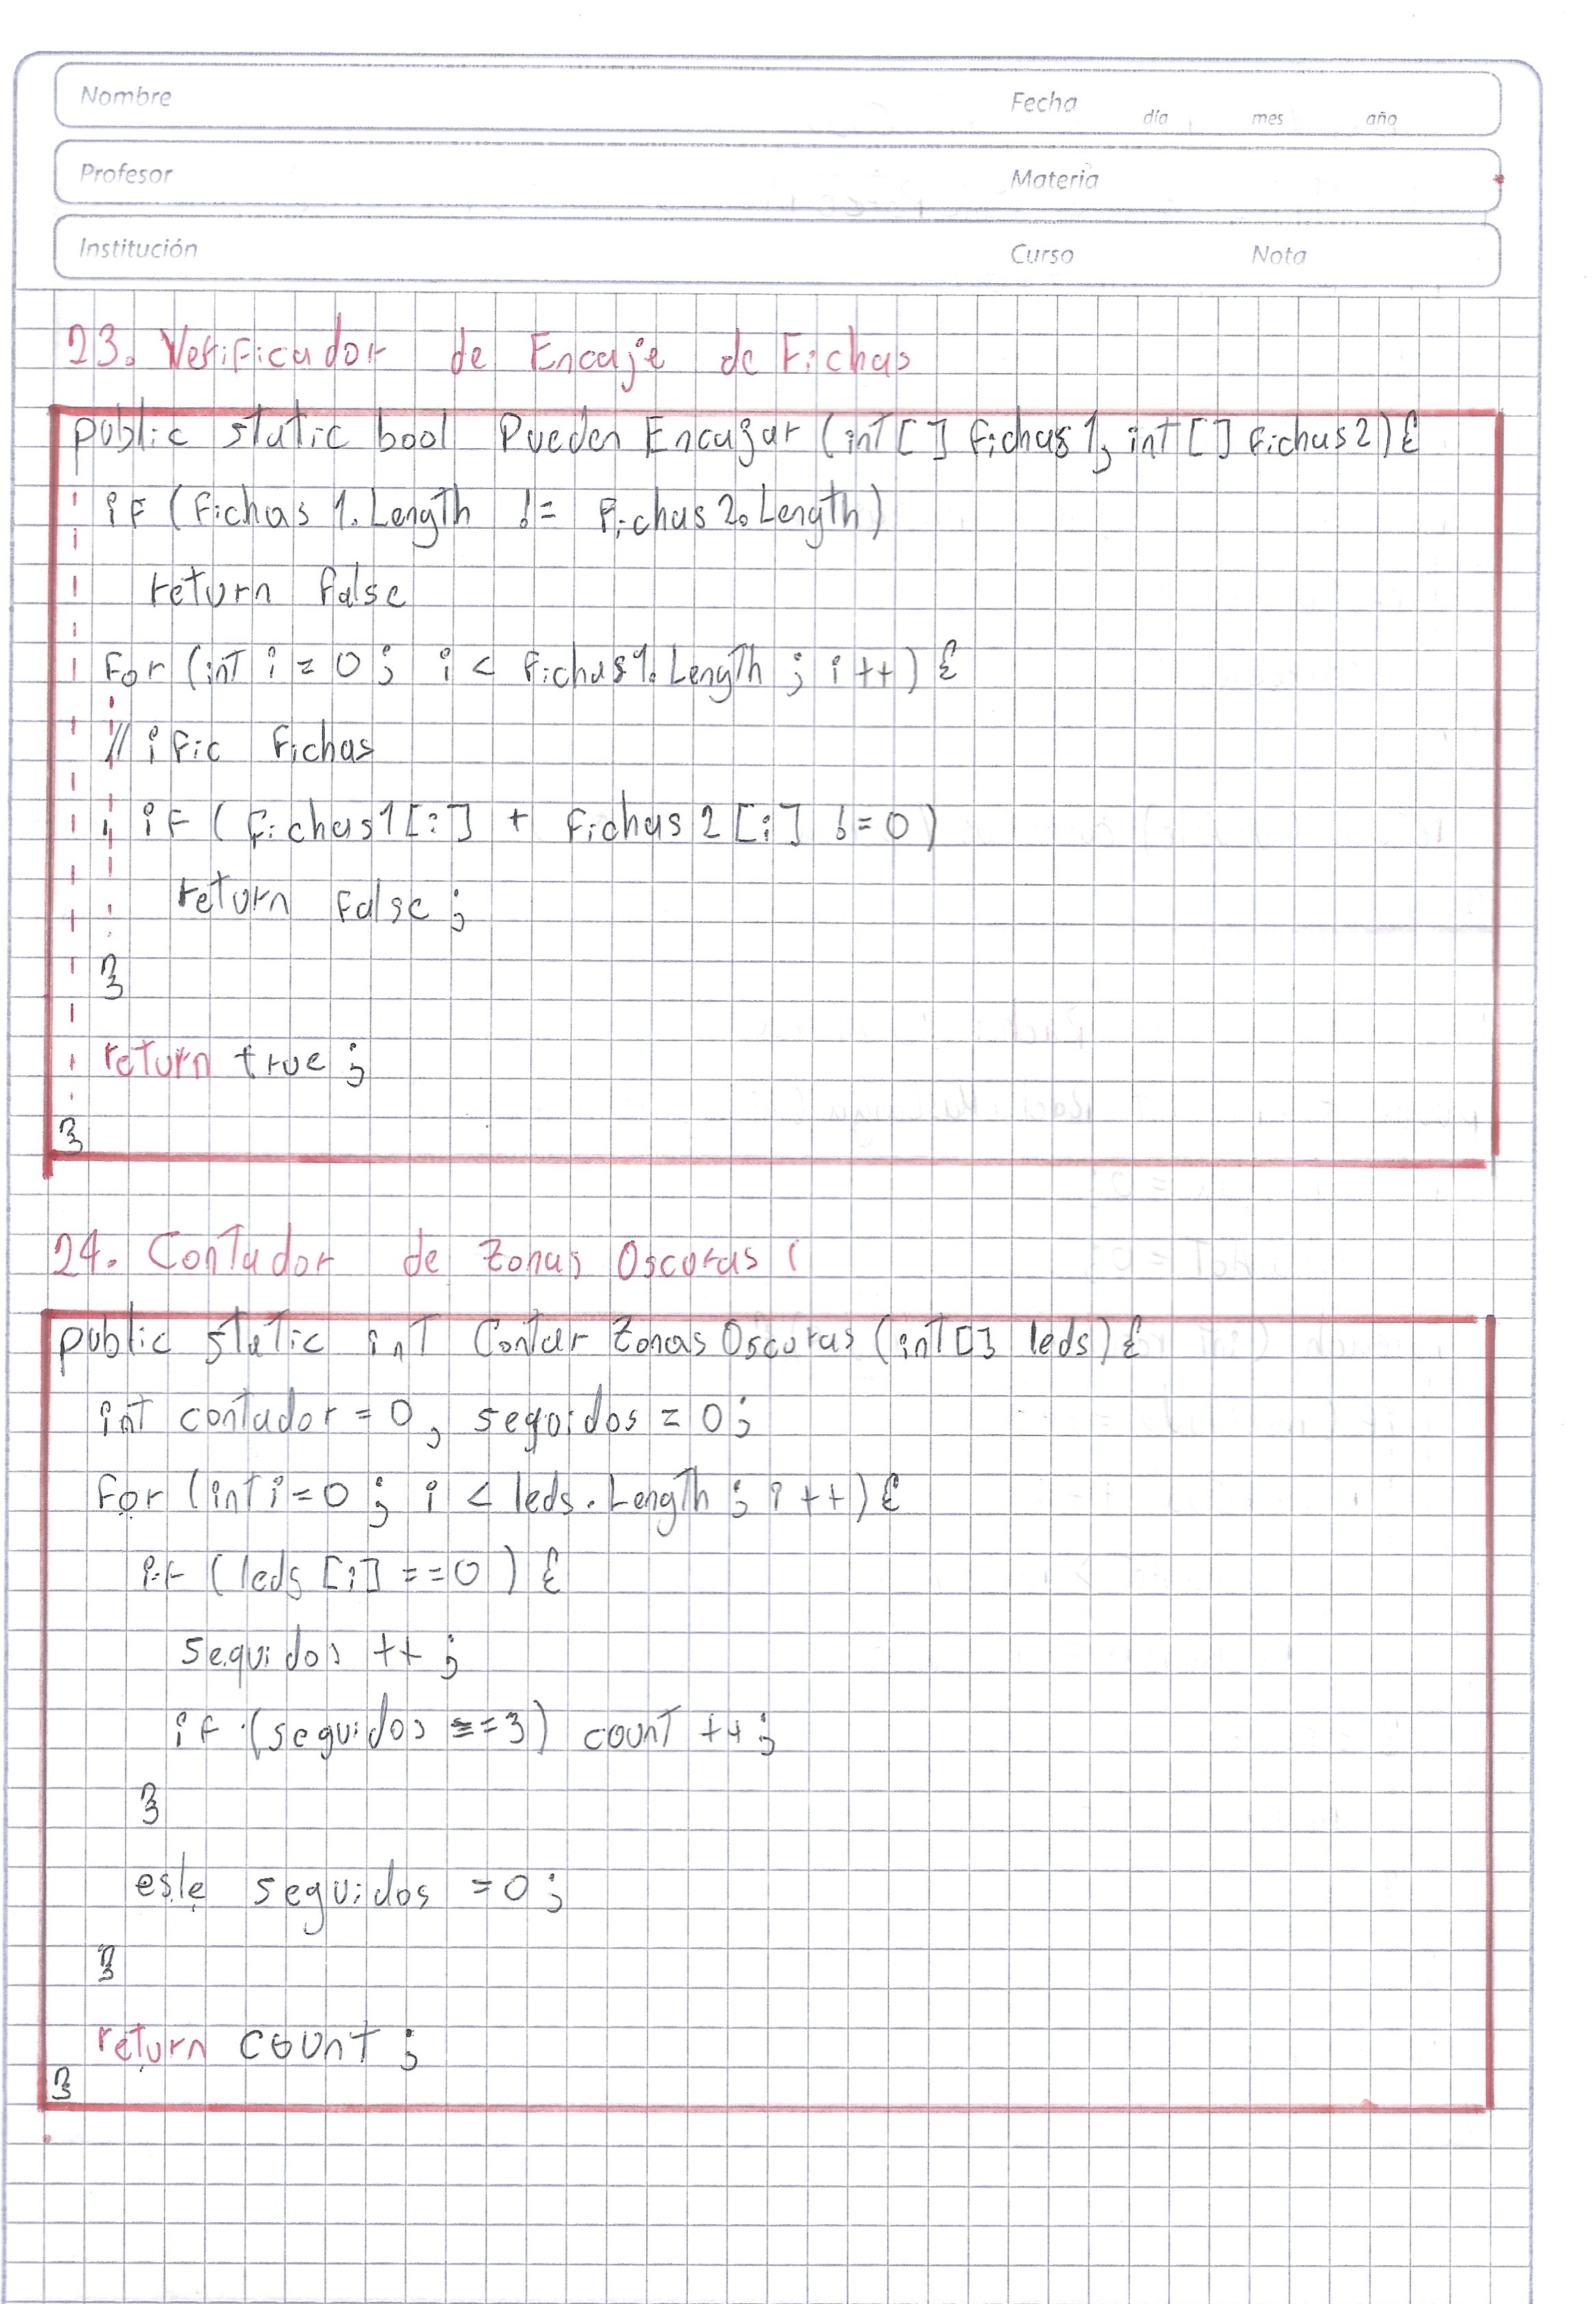 Nombre Fecha día mes año
Profesor Materia
Institución Curso Nota
23. Verificador de Encaje de Fichas
public static bool Pueden Encazar (int [] fichas1, int [] fichas2) {
if (fichas 1. Length != fichas 2. Length)
return false
for (int i = 0 ; i < fichas1. Length ; i ++) {
// ific fichas
if ( fichas1 [i] + fichas 2 [i] != 0 )
return false ;
}
return true ;
}
24. Contador de Zonas Oscuras (
public static int Contar Zonas Oscuras (int [] leds) {
int contador = 0 , seguidos = 0 ;
for (int i = 0 ; i < leds . Length ; i ++) {
if ( leds [i] == 0 ) {
seguidos ++ ;
if (seguidos == 3) count ++ ;
}
esle seguidos = 0 ;
}
return count ;
}